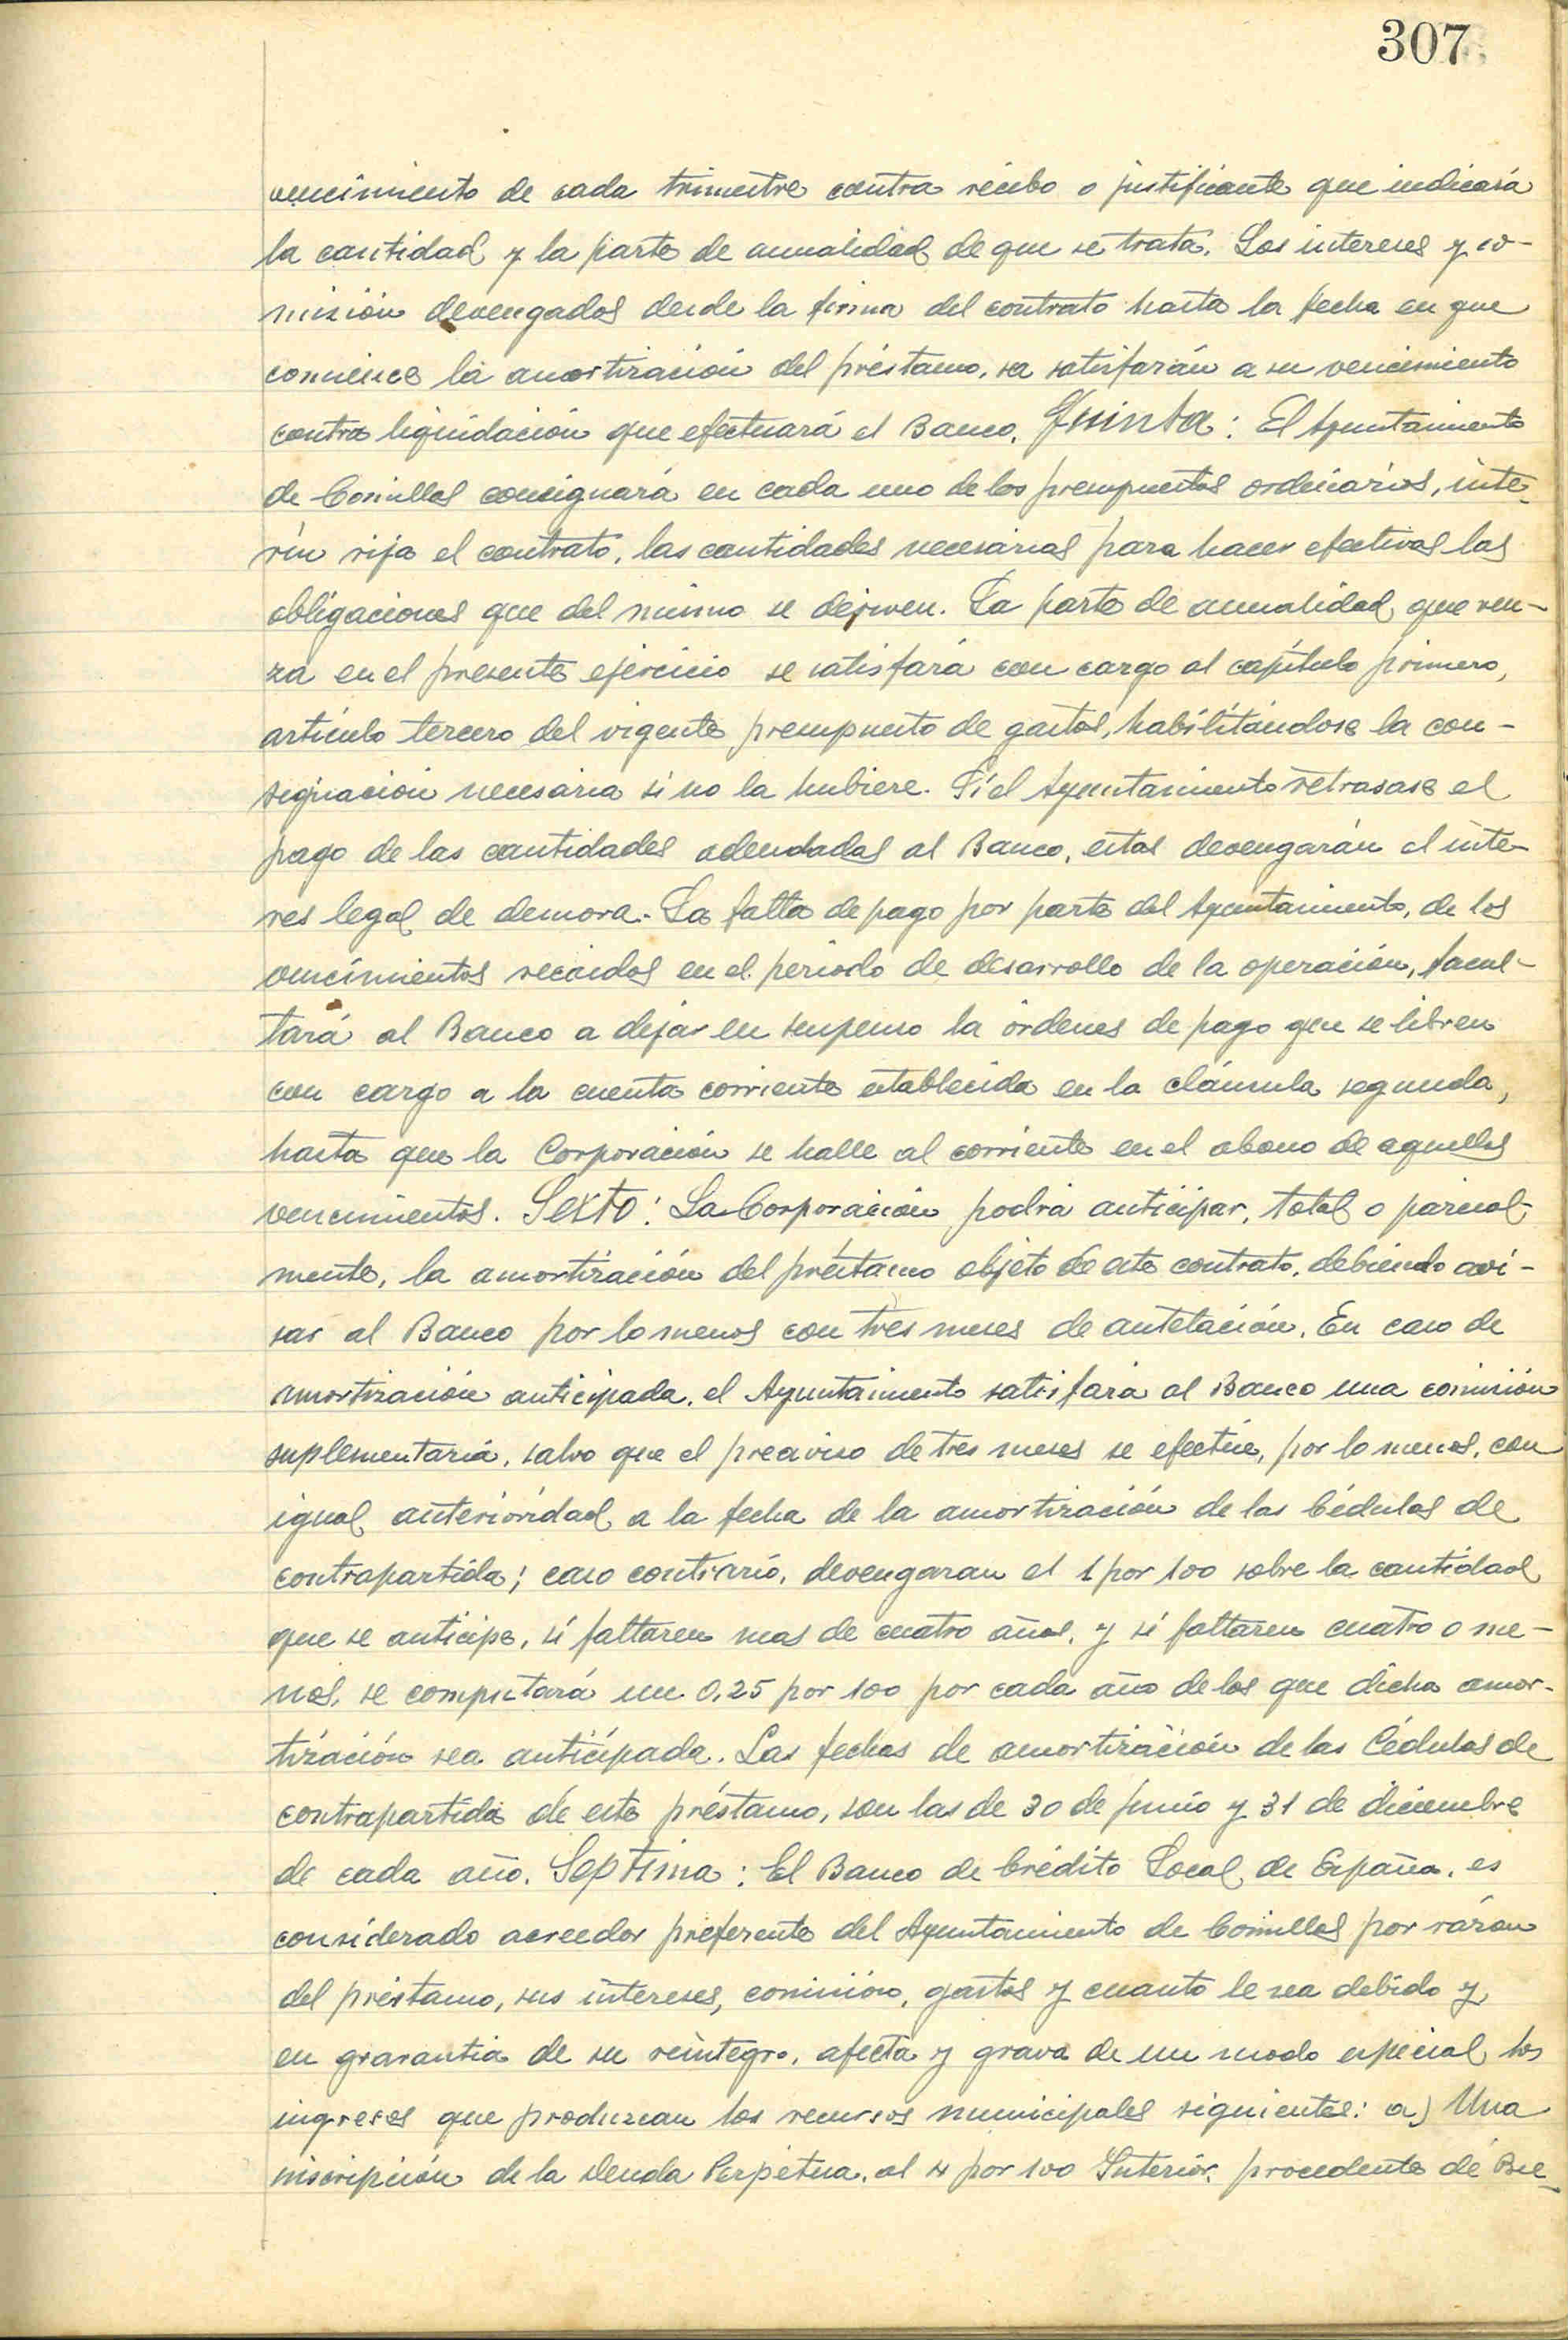 307
vencimiento de cada trimestre contra recibo o justificante que indicará
la cantidad y la parte de anualidad de que se trata. Los intereses y co-
misión devengados desde la firma del contrato hasta la fecha en que
comience la amortización del préstamo, se satisfarán a su vencimiento
contra liquidación que efectuará el Banco. Quinta: El Ayuntamiento
de Comillas consignará en cada uno de los presupuestos ordinarios, inte-
rín rija el contrato, las cantidades necesarias para hacer efectivas las
obligaciones que del mismo se deriven. La parte de anualidad que ven-
za en el presente ejercicio se satisfará con cargo al capítulo primero,
artículo tercero del vigente presupuesto de gastos, habilitándose la con-
signación necesaria si no la hubiere. Si el Ayuntamiento retrasase el
pago de las cantidades adeudadas al Banco, estas devengarán el inte-
res legal de demora. La falta de pago por parte del Ayuntamiento, de los
vencimientos recaidos en el periodo de desarrollo de la operación, facul-
tará al Banco a dejar en suspenso la órdenes de pago que se libren
con cargo a la cuenta corriente establecida en la cláusula segunda,
hasta que la Corporación se halle al corriente en el abono de aquellos
vencimientos. Sexto: La Corporación podrá anticipar, total o parcial-
mente, la amortización del préstamo objeto de este contrato, debiendo avi-
sar al Banco por lo menos con tres meses de antelación. En caso de
amortización anticipada, el Ayuntamiento satisfará al Banco una comisión
suplementaria, salvo que el preaviso de tres meses se efectúe, por lo menos, con
igual anterioridad a la fecha de la amortización de las Cédulas de
contrapartida; caso contrario, devengaran el 1 por 100 sobre la cantidad
que se anticipe, si faltaren mas de cuatro años, y si faltaren cuatro o me-
nos, se computará un 0,25 por 100 por cada año de los que dicha amor-
tización sea anticipada. Las fechas de amortización de las Cédulas de
contrapartida de este préstamo, son las de 30 de junio y 31 de diciembre
de cada año. Septima: El Banco de Crédito Local de España, es
considerado acreedor preferente del Ayuntamiento de Comillas por razón
del préstamo, sus intereses, comisión, gastos y cuanto le sea debido y
en gravantia de su reintegro, afecta y grava de un modo especial los
ingresos que produzcan los recursos municipales siguientes: a) Una
inscripción de la deuda Perpétua, al 4 por 100 Interior, procedente de Bie-